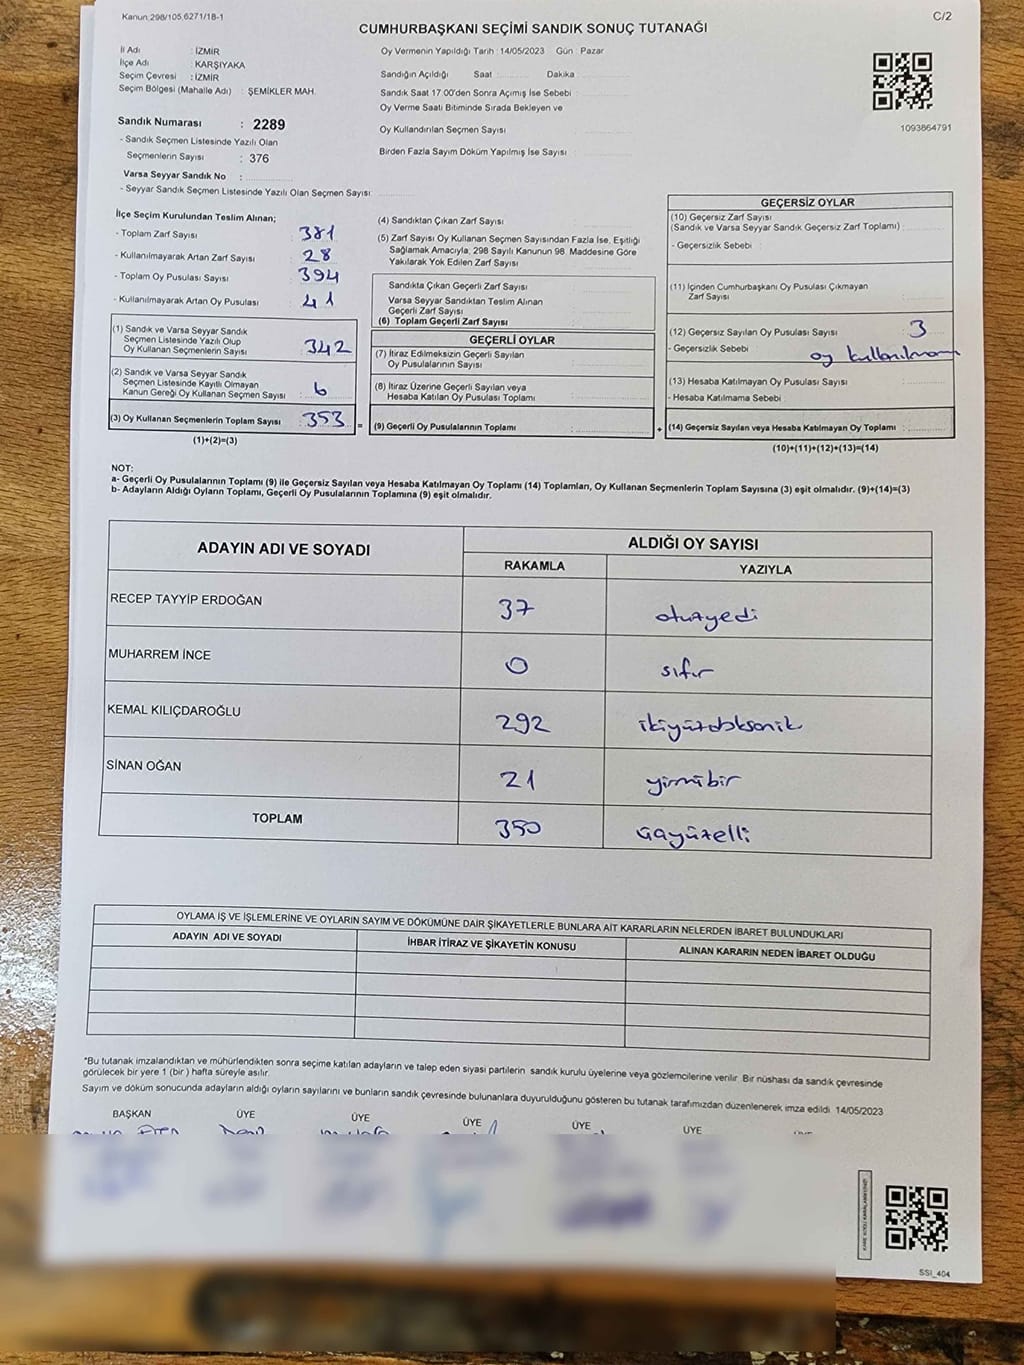 Kanun:298/105,6271/18-1
C/2
CUMHURBAŞKANI SEÇİMİ SANDIK SONUÇ TUTANAĞI
İl Adı : İZMİR
İlçe Adı : KARŞIYAKA
Seçim Çevresi : İZMİR
Seçim Bölgesi (Mahalle Adı) : ŞEMİKLER MAH.
Sandık Numarası : 2289
- Sandık Seçmen Listesinde Yazılı Olan
Seçmenlerin Sayısı : 376
Varsa Seyyar Sandık No :
- Seyyar Sandık Seçmen Listesinde Yazılı Olan Seçmen Sayısı:
Oy Vermenin Yapıldığı Tarih : 14/05/2023 Gün : Pazar
Sandığın Açıldığı Saat Dakika
Sandık Saat 17.00'den Sonra Açımış İse Sebebi
Oy Verme Saati Bitiminde Sırada Bekleyen ve
Oy Kullandırılan Seçmen Sayısı
Birden Fazla Sayım Döküm Yapılmış İse Sayısı
1093864791
İlçe Seçim Kurulundan Teslim Alınan;
- Toplam Zarf Sayısı : 381
- Kullanılmayarak Artan Zarf Sayısı : 28
- Toplam Oy Pusulası Sayısı : 394
- Kullanılmayarak Artan Oy Pusulası : 41
(1) Sandık ve Varsa Seyyar Sandık
Seçmen Listesinde Yazılı Olup
Oy Kullanan Seçmenlerin Sayısı : 342
(2) Sandık ve Varsa Seyyar Sandık
Seçmen Listesinde Kayıtlı Olmayan
Kanun Gereği Oy Kullanan Seçmen Sayısı : 6
(3) Oy Kullanan Seçmenlerin Toplam Sayısı : 353 =
(1)+(2)=(3)
(4) Sandıktan Çıkan Zarf Sayısı
(5) Zarf Sayısı Oy Kullanan Seçmen Sayısından Fazla İse, Eşitliği
Sağlamak Amacıyla, 298 Sayılı Kanunun 98. Maddesine Göre
Yakılarak Yok Edilen Zarf Sayısı
Sandıkta Çıkan Geçerli Zarf Sayısı
Varsa Seyyar Sandıktan Teslim Alınan
Geçerli Zarf Sayısı
(6) Toplam Geçerli Zarf Sayısı
GEÇERLİ OYLAR
(7) İtiraz Edilmeksizin Geçerli Sayılan
Oy Pusulalarının Sayısı
(8) İtiraz Üzerine Geçerli Sayılan veya
Hesaba Katılan Oy Pusulası Toplamı
(9) Geçerli Oy Pusulalarının Toplamı : +
GEÇERSİZ OYLAR
(10) Geçersiz Zarf Sayısı
(Sandık ve Varsa Seyyar Sandık Geçersiz Zarf Toplamı)
- Geçersizlik Sebebi :
(11) İçinden Cumhurbaşkanı Oy Pusulası Çıkmayan
Zarf Sayısı
(12) Geçersiz Sayılan Oy Pusulası Sayısı : 3
- Geçersizlik Sebebi : oy kullanılmamı
(13) Hesaba Katılmayan Oy Pusulası Sayısı
- Hesaba Katılmama Sebebi :
(14) Geçersiz Sayılan veya Hesaba Katılmayan Oy Toplamı :
(10)+(11)+(12)+(13)=(14)
NOT:
a- Geçerli Oy Pusulalarının Toplamı (9) ile Geçersiz Sayılan veya Hesaba Katılmayan Oy Toplamı (14) Toplamları, Oy Kullanan Seçmenlerin Toplam Sayısına (3) eşit olmalıdır. (9)+(14)=(3)
b- Adayların Aldığı Oyların Toplamı, Geçerli Oy Pusulalarının Toplamına (9) eşit olmalıdır.
ADAYIN ADI VE SOYADI ALDIĞI OY SAYISI
RAKAMLA YAZIYLA
RECEP TAYYİP ERDOĞAN 37 otuzyedi
MUHARREM İNCE 0 sıfır
KEMAL KILIÇDAROĞLU 292 ikiyüzdoksanik
SİNAN OĞAN 21 yirmibir
TOPLAM 350 üçyüzelli
OYLAMA İŞ VE İŞLEMLERİNE VE OYLARIN SAYIM VE DÖKÜMÜNE DAİR ŞİKAYETLERLE BUNLARA AİT KARARLARIN NELERDEN İBARET BULUNDUKLARI
ADAYIN ADI VE SOYADI İHBAR İTİRAZ VE ŞİKAYETİN KONUSU ALINAN KARARIN NEDEN İBARET OLDUĞU
*Bu tutanak imzalandıktan ve mühürlendikten sonra seçime katılan adayların ve talep eden siyasi partilerin sandık kurulu üyelerine veya gözlemcilerine verilir. Bir nüshası da sandık çevresinde
görülecek bir yere 1 (bir) hafta süreyle asılır.
Sayım ve döküm sonucunda adayların aldığı oyların sayılarını ve bunların sandık çevresinde bulunanlara duyurulduğunu gösteren bu tutanak tarafımızdan düzenlenerek imza edildi. 14/05/2023
BAŞKAN ÜYE ÜYE ÜYE ÜYE ÜYE
SSI_404